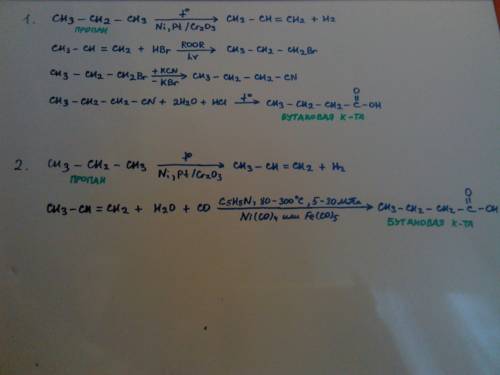 1. CH3 – CH2 – CH3 →(t°, Ni, Pt/Cr2O3) CH3 – CH = CH2 + H2
ПРОПАН
CH3 – CH = CH2 + HBr →(ROOR, hν) CH3 – CH2 – CH2Br
CH3 – CH2 – CH2Br →(+KCN, –KBr) CH3 – CH2 – CH2 – CN
CH3 – CH2 – CH2 – CN + 2H2O + HCl →(t°) CH3 – CH2 – CH2 – C(=O) – OH
БУТАНОВАЯ К-ТА
2. CH3 – CH2 – CH3 →(t°, Ni, Pt/Cr2O3) CH3 – CH = CH2 + H2
ПРОПАН
CH3 – CH = CH2 + H2O + CO →(C5H5N, 80-300°C, 5-30 МПа, Ni(CO)4 или Fe(CO)5) CH3 – CH2 – CH2 – C(=O) – OH
БУТАНОВАЯ К-ТА